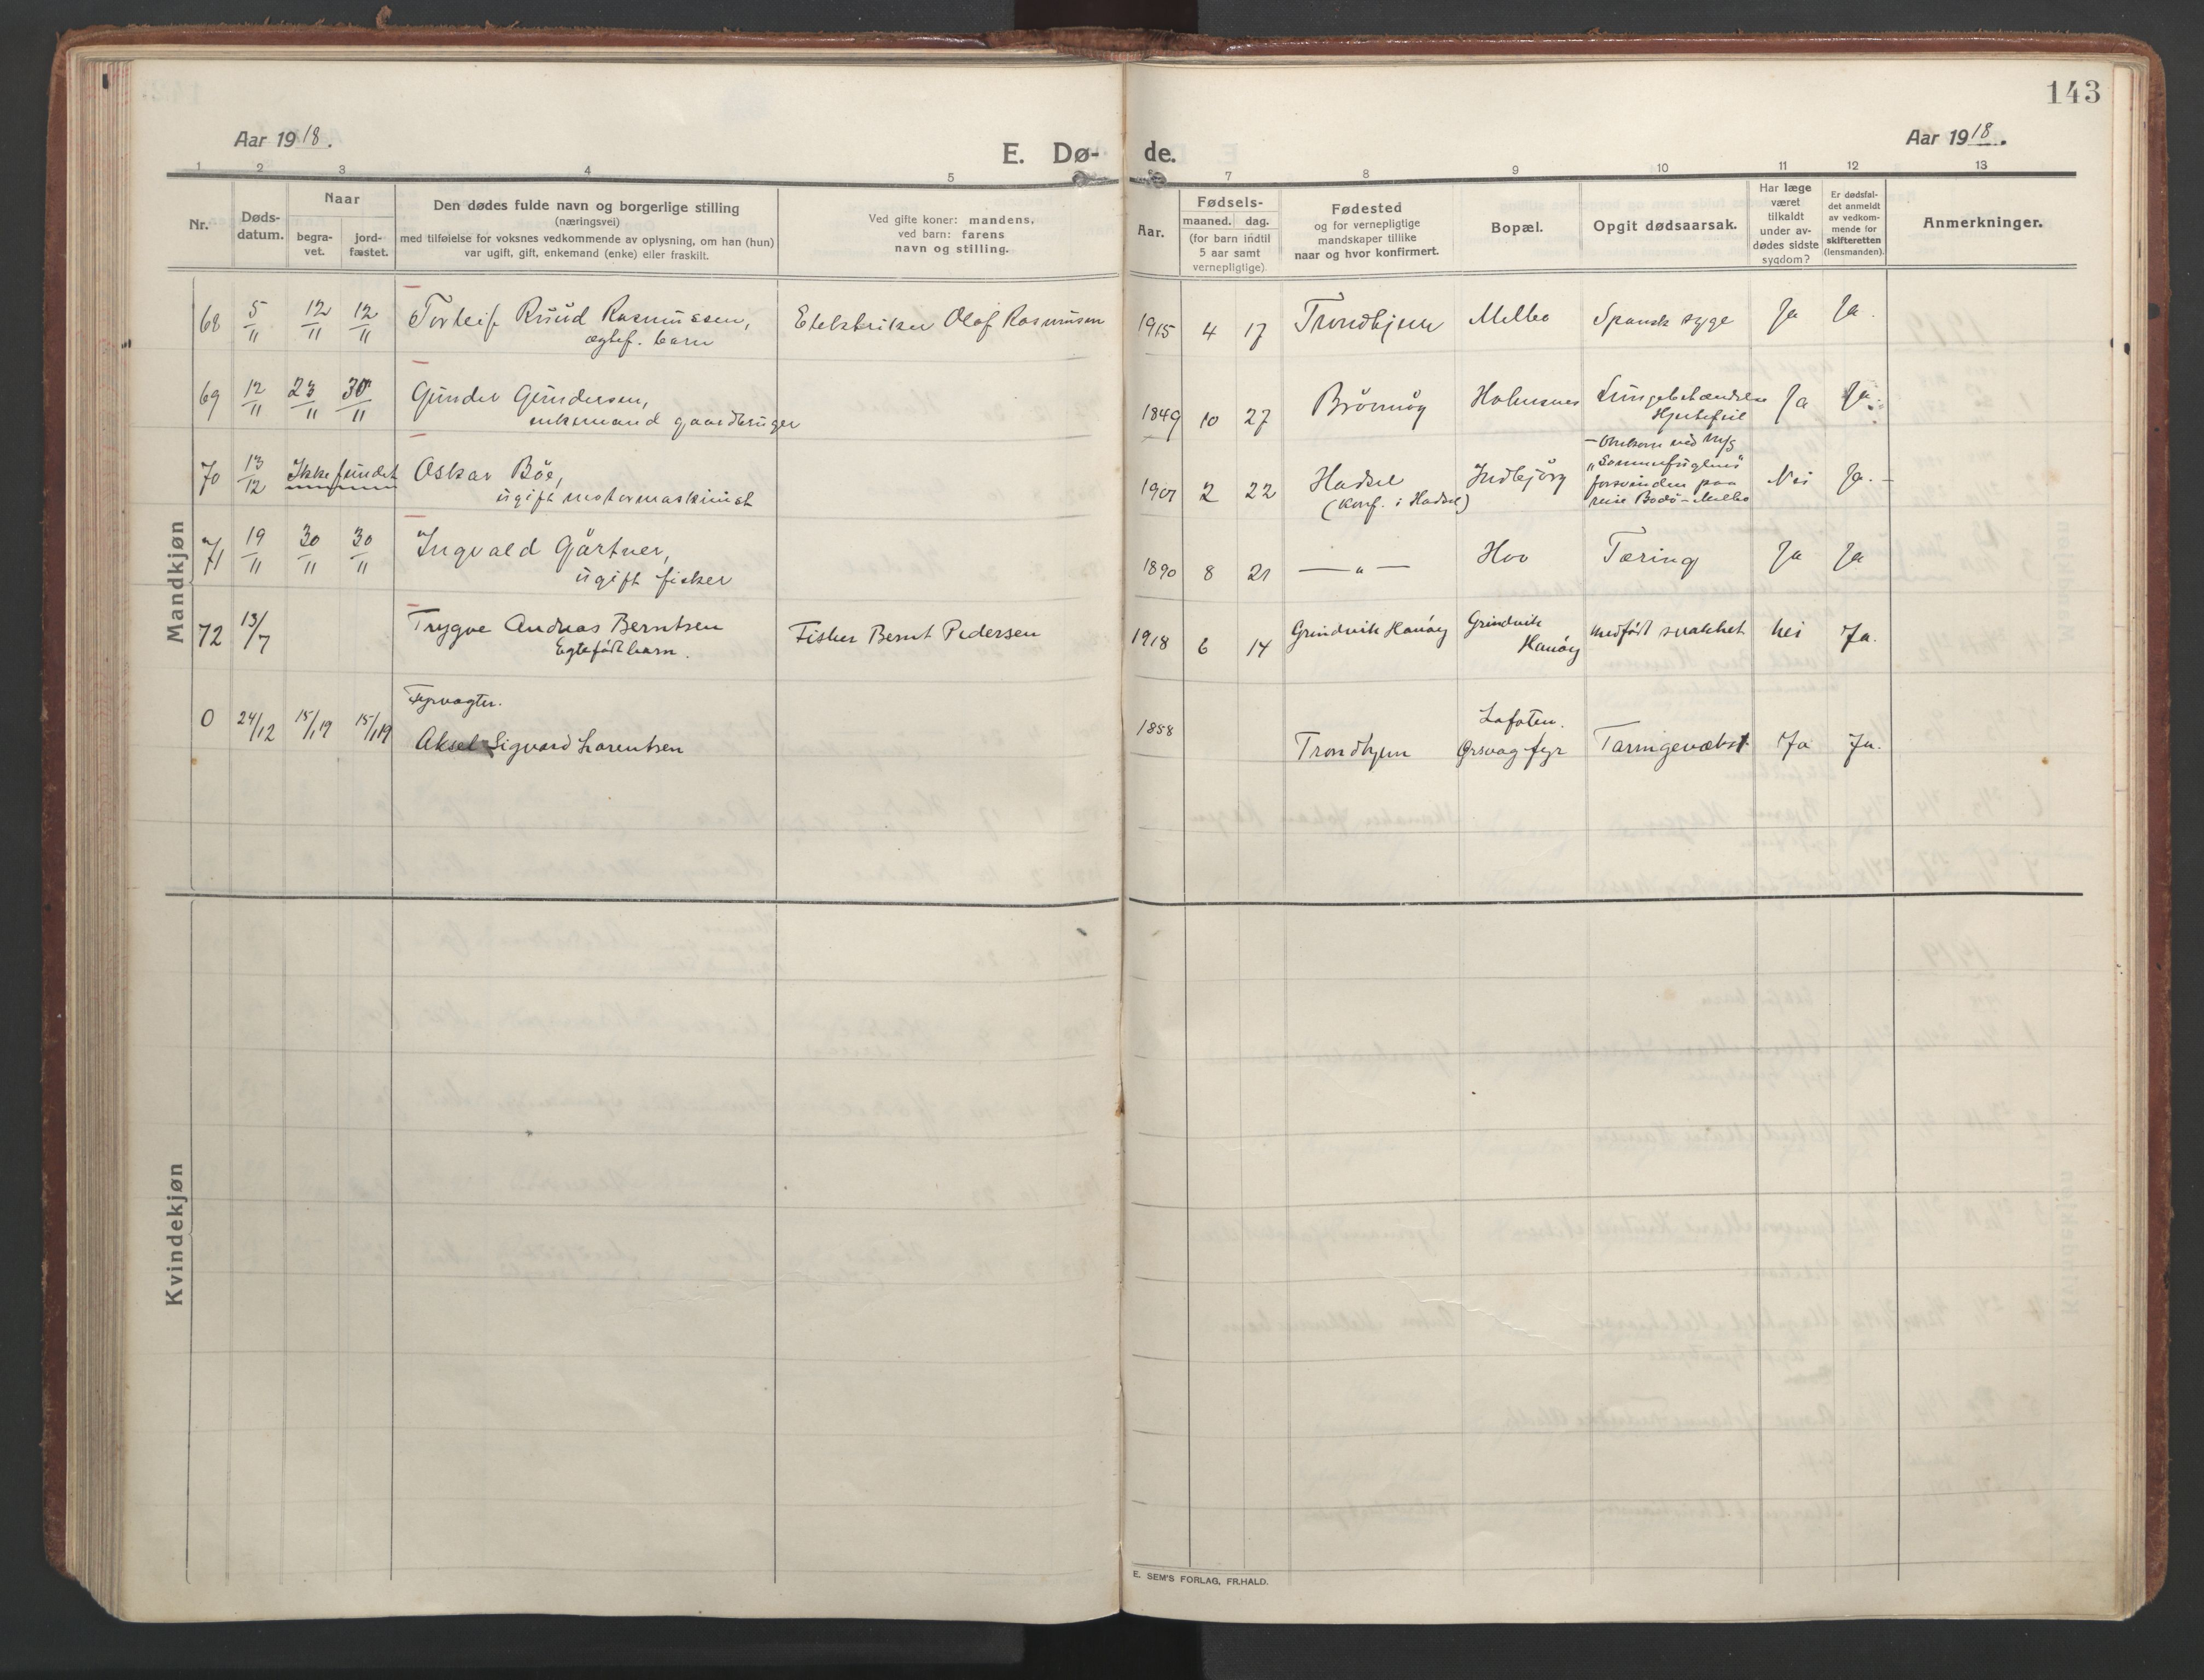 143
Aar 1918.
E. Dø- de.
Aar 1918.
1 2 3 4 5 7 8 9 10 11 12 13
Nr.
Døds-
datum.
Naar
begra-
vet.
jord-
fæstet.
Den dødes fulde navn og borgerlige stilling
(næringsvei)
med tilføielse for voksnes vedkommende av oplysning, om han (hun)
var ugift, gift, enkemand (enke) eller fraskilt.
Ved gifte koner: mandens,
ved barn: farens
navn og stilling.
Aar.
Fødsels-
maaned. dag.
(for barn indtil
5 aar samt
vernepligtige)
Fødested
og for vernepligtige
mandskaper tillike
naar og hvor konfirmert.
Bopæl.
Opgit dødsaarsak.
Har læge
været
tilkaldt
under av-
dødes sidste
sygdom?
Er dødsfal-
det anmeldt
av vedkom-
mende for
skifteretten
(lensmanden).
Anmerkninger.
Mandkjøn
68 5/11 12/11 12/11 Torleif Ruud Rasmussen, Elektriker Olaf Rasmussen 1915 4 17 Trondhjem Melbo Spansk syge Ja Ja.
ægtef. barn
69 12/11 23/11 30/11 Gunder Gundersen, 1849 10 27 Brönnöy Holmsnes Lungebetændelse Ja Ja.
enkemand gaardbruger
Hjertefeil
70 13/12 Ikke fundet Oskar Böe, 1901 2 22 Hadsel Indbjörg Nei Ja.
ugift motormaskinist
(Konf. i Hadsel)
– Omkom ved M/S
"Sommerfuglens"
forsvinden paa
reise Bodö – Melbo
71 19/11 30/11 30/11 Ingvald Gårtner, 1890 8 21 — " — Hov Tæring Ja Ja
ugift fisker
72 13/7 Trygve Andreas Berntsen Fisker Bernt Pedersen 1918 6 14 Grindvik Hanöy Grindvik Hanöy medfödt svakhet Nei Ja.
Egtefödt barn.
0 24/12 15/1 19 15/1 19 Fyrvogter. 1858 Trondhjem Lofoten. Tæringevækst Ja Ja.
Aksel Sigvard Lorentsen
Ørsvag fyr
Kvindekjøn
E. SEM'S FORLAG, FR.HALD.